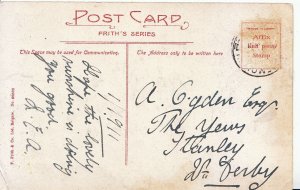 POST CARD
FRITH'S SERIES
This Space may be used for Communication.
The Address only to be written here
Affix
Half penny
Stamp
1911
Hope the lovely
sunshine is doing
you good
A. Ogden Esq.
The Yews
Stanley
Nr Derby